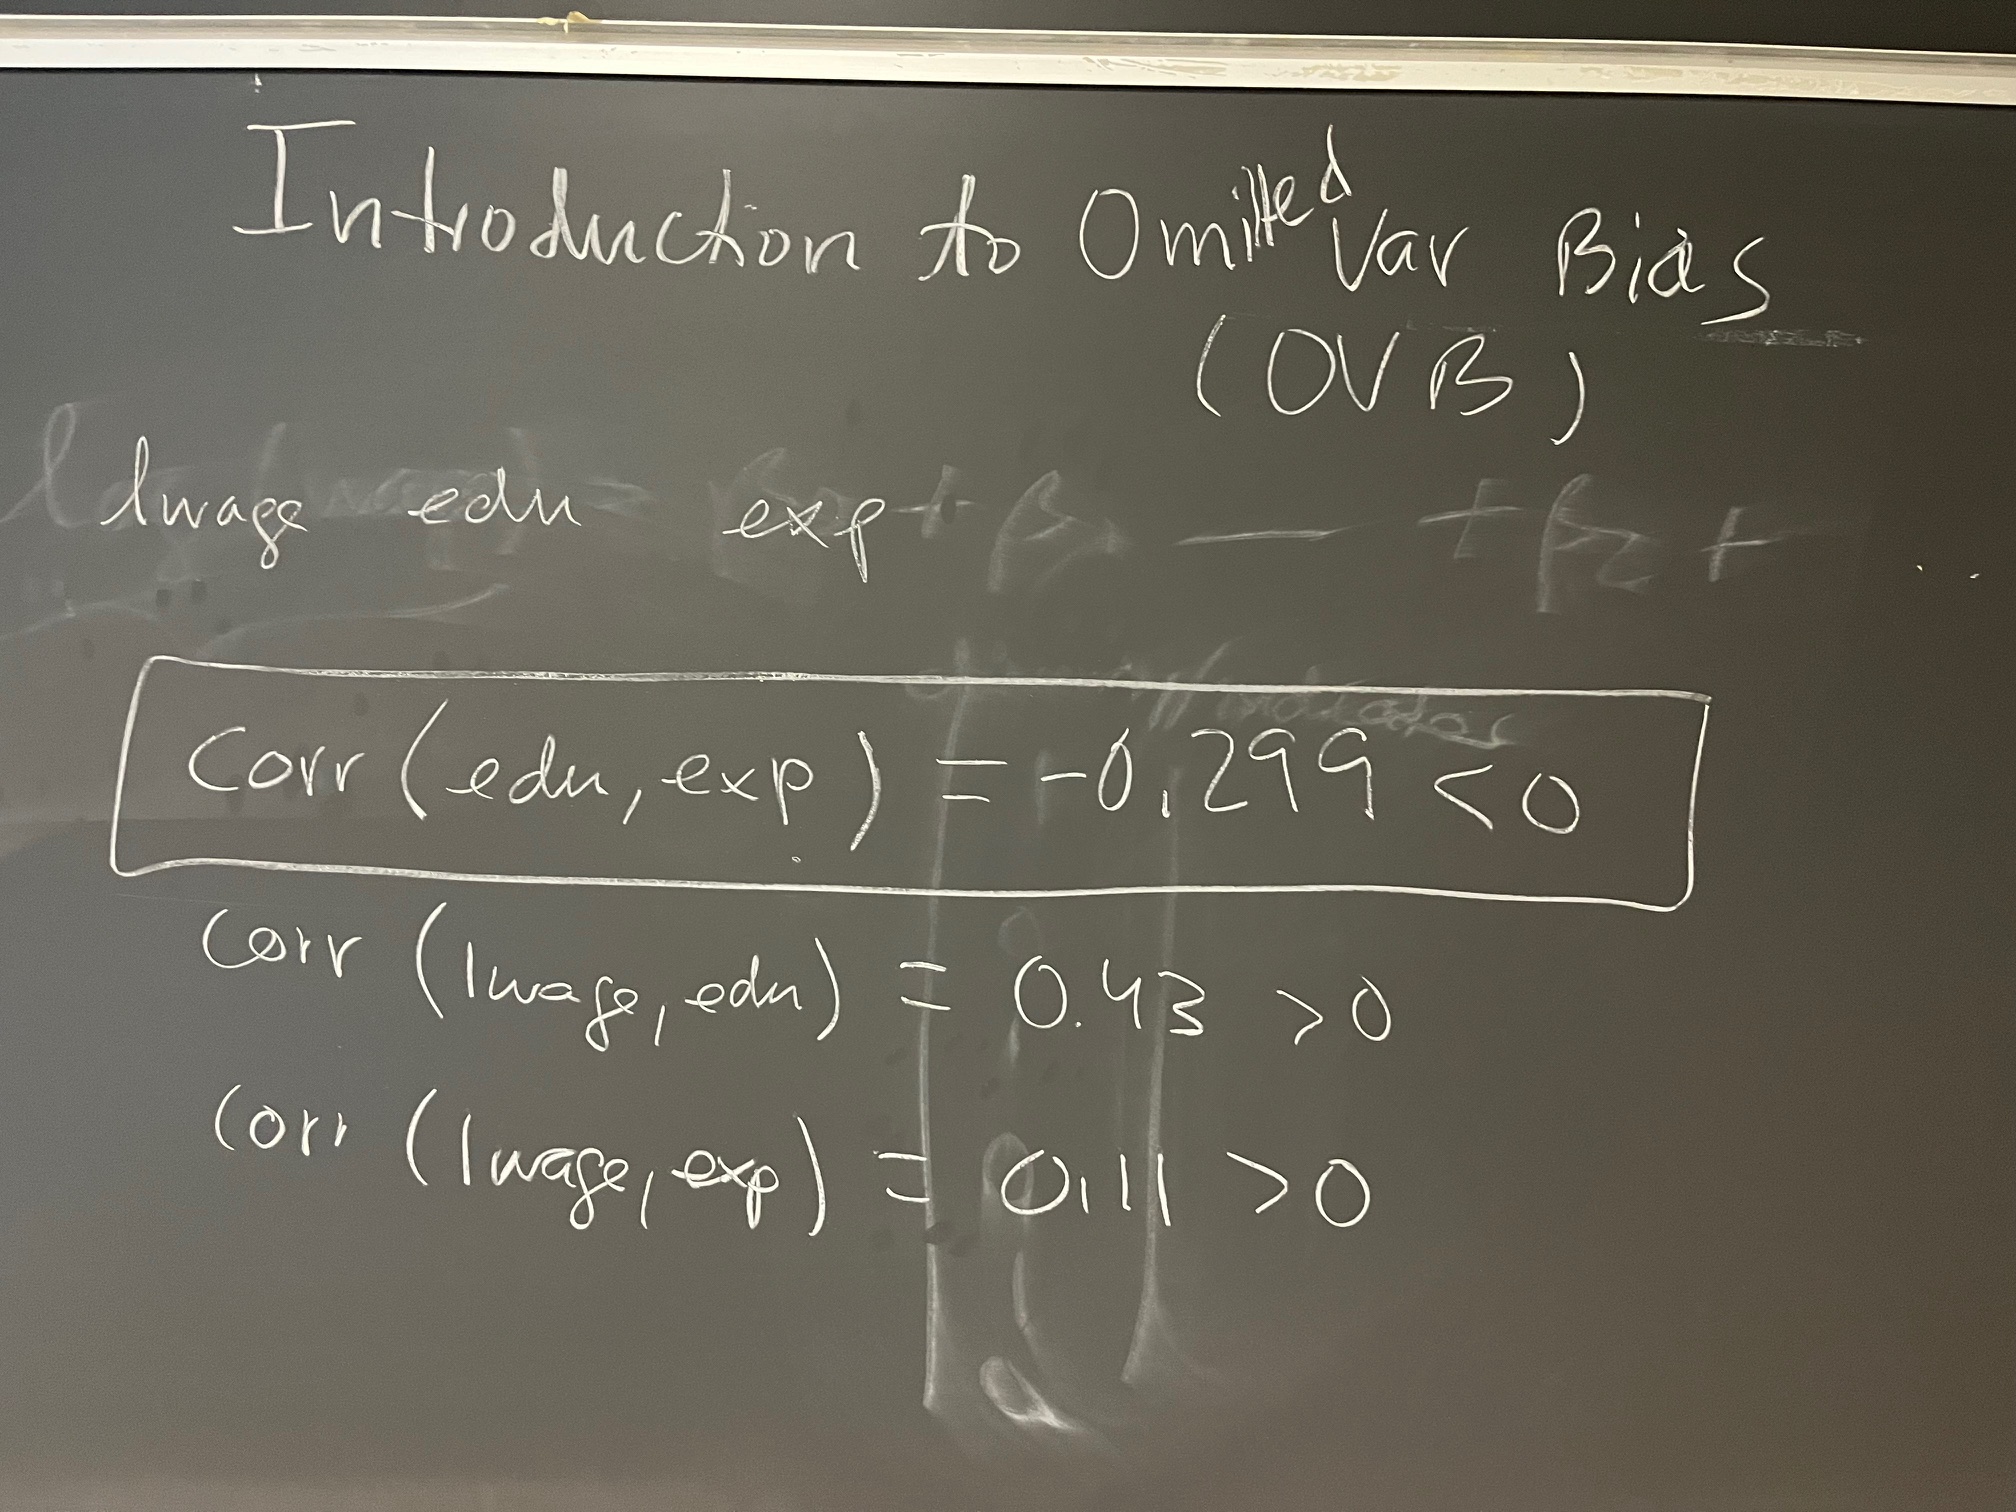 Introduction to Omitted Var Bias
(OVB)
lwage edu exp
Corr (edu, exp) = -0.299 < 0
Corr (lwage, edu) = 0.43 > 0
Corr (lwage, exp) = 0.11 > 0